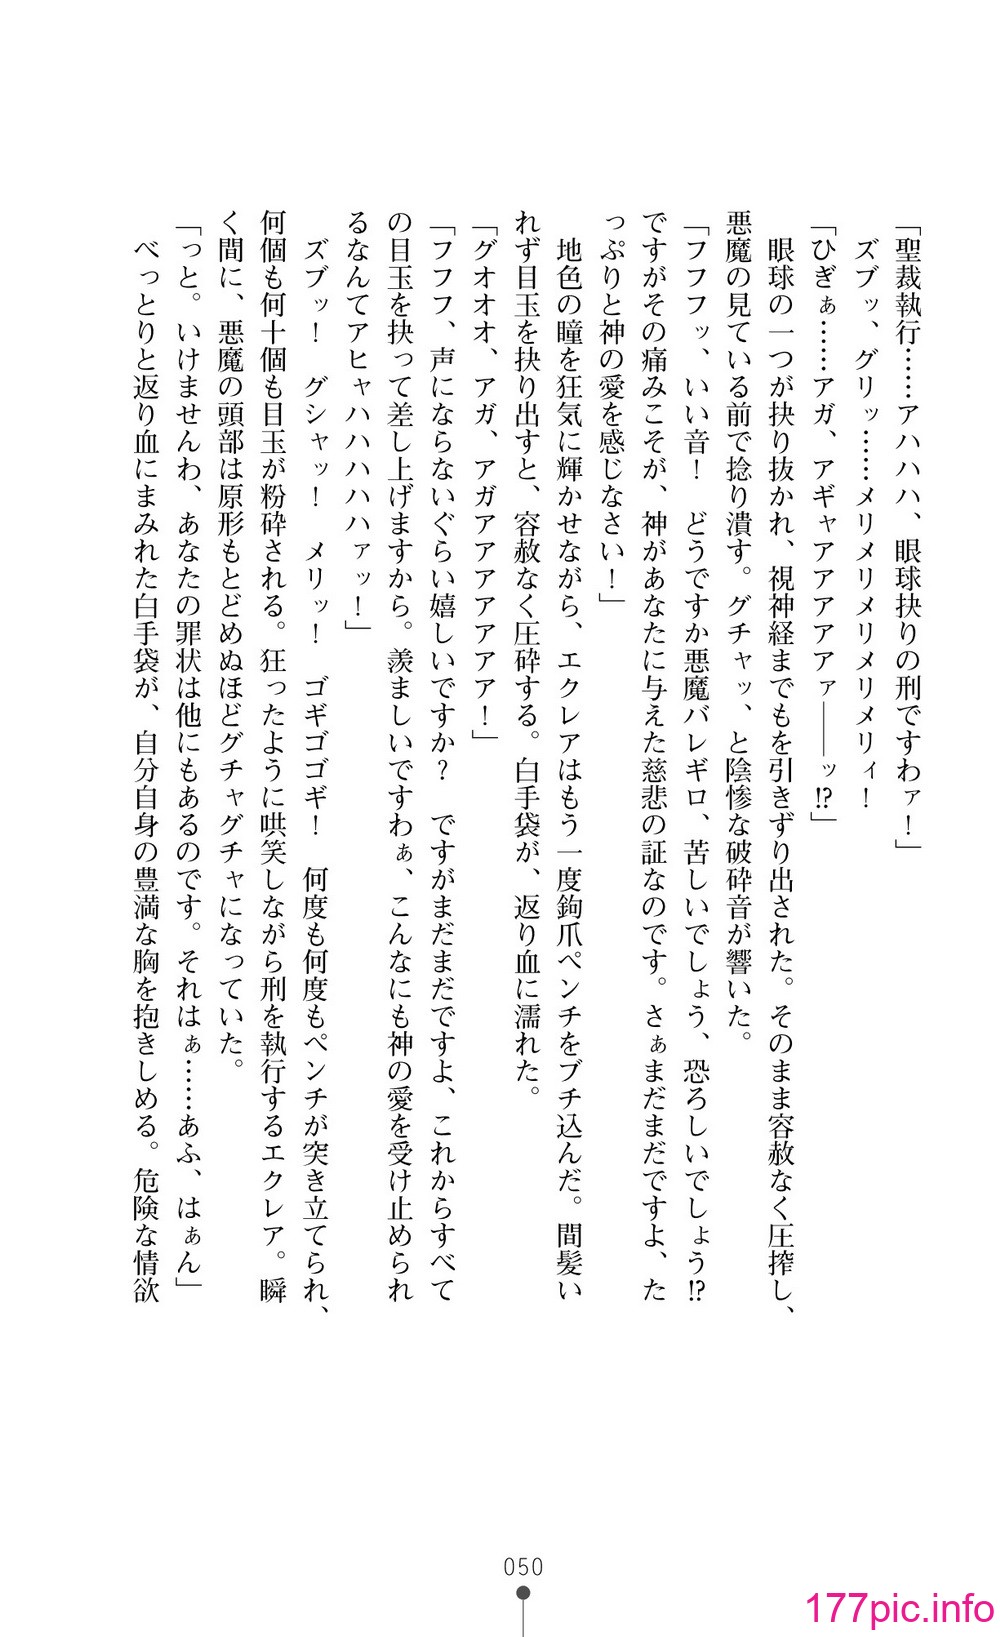 「聖裁執行……アハハハ、眼球抉りの刑ですわァ！」
ズブッ、グリッ……メリメリメリメリメリィ！
「ひぎぁ……アガ、アギャアアアアァ――ッ!?」
眼球の一つが抉り抜かれ、視神経までもを引きずり出された。そのまま容赦なく圧搾し、
悪魔の見ている前で捻り潰す。グチャッ、と陰惨な破砕音が響いた。
「フフフッ、いい音！　どうですか悪魔バレギロ、苦しいでしょう、恐ろしいでしょう!?
ですがその痛みこそが、神があなたに与えた慈悲の証なのです。さぁまだまだですよ、た
っぷりと神の愛を感じなさい！」
地色の瞳を狂気に輝かせながら、エクレアはもう一度鉤爪ペンチをブチ込んだ。間髪い
れず目玉を抉り出すと、容赦なく圧砕する。白手袋が、返り血に濡れた。
「グオオオ、アガ、アガアアアアアア！」
「フフフ、声にならないぐらい嬉しいですか？　ですがまだまだですよ、これからすべて
の目玉を抉って差し上げますから。羨ましいですわぁ、こんなにも神の愛を受け止められ
るなんてアヒャハハハハハァッ！」
ズブッ！　グシャッ！　メリッ！　ゴギゴゴギ！　何度も何度もペンチが突き立てられ、
何個も何十個も目玉が粉砕される。狂ったように哄笑しながら刑を執行するエクレア。瞬
く間に、悪魔の頭部は原形もとどめぬほどグチャグチャになっていた。
「っと。いけませんわ、あなたの罪状は他にもあるのです。それはぁ……あふ、はぁん」
べっとりと返り血にまみれた白手袋が、自分自身の豊満な胸を抱きしめる。危険な情欲
050
177pic.info